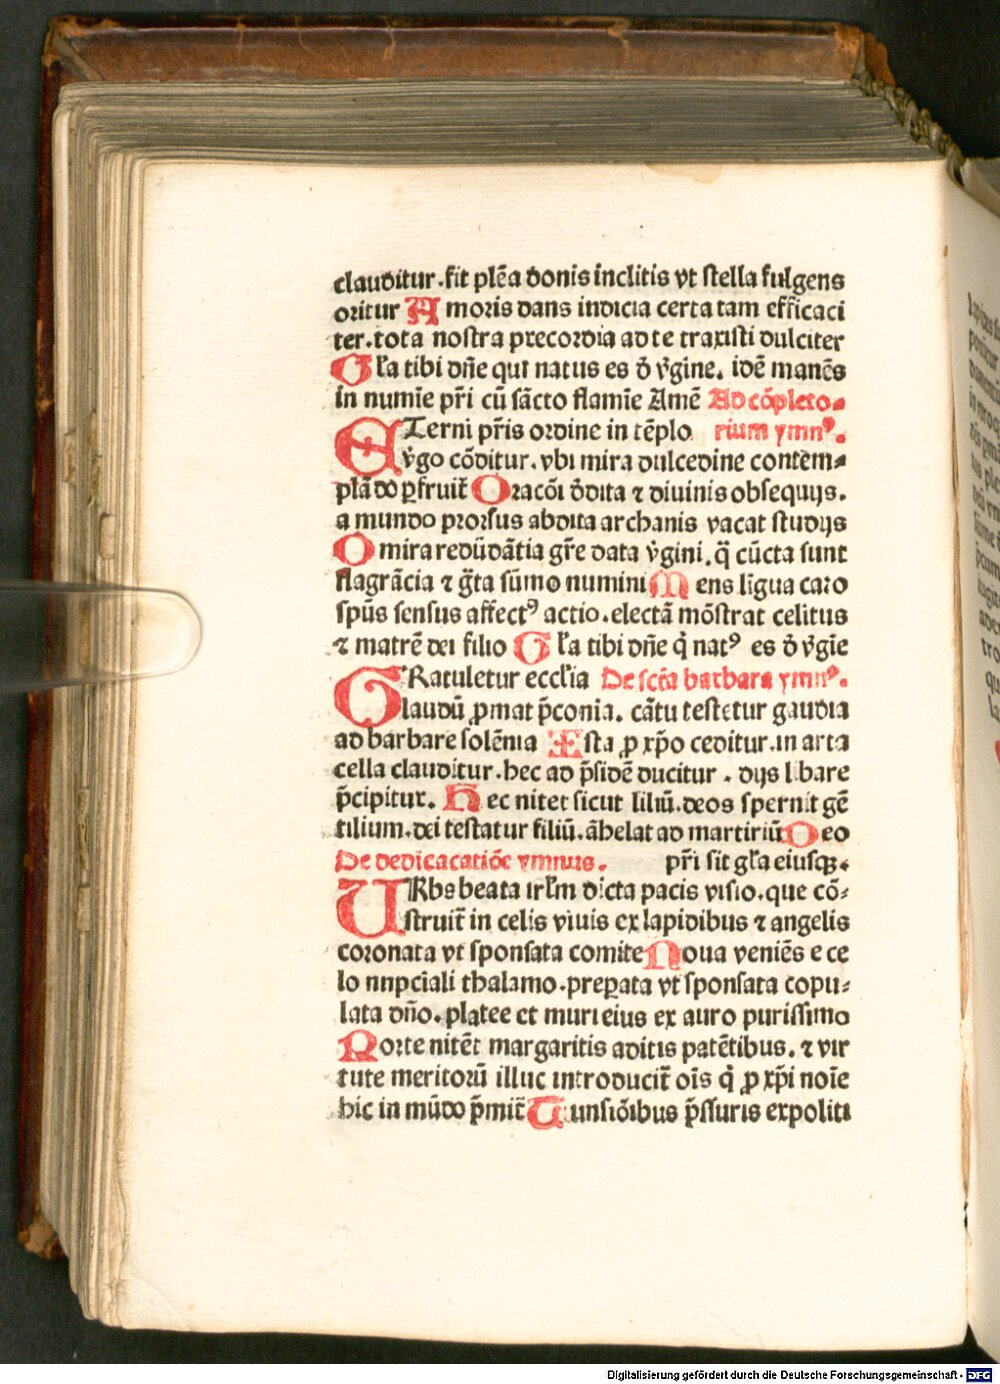 clauditur. fit plēa donis inclitis vt stella fulgens
oritur Amoris dans indicia certa tam efficaci
ter. tota nostra precordia ad te traxisti dulciter
Gl̄a tibi dn̄e qui natus es d̄ v̄gine. idē manēs
in numīe pr̄i cū sācto flamīe Amē Ad cōpleto-
ETerni pr̄is ordine in tēplo rium ymnꝰ.
v̄go cōditur. vbi mira dulcedine contem-
plādo ꝑfruit̄ Oracōi d̄dita ⁊ diuinis obsequijs.
a mundo prorsus abdita archanis vacat studijs
O mira redūdātia gr̄e data v̄gini. q̄ cūcta sunt
flagrācia ⁊ ḡta sūmo numini Mens līgua caro
spūs sensus affectꝰ actio. electā mōstrat celitus
⁊ matrē dei filio Gl̄a tibi dn̄e q̄ natꝰ es d̄ v̄gīe
GRatuletur eccl̄ia De sctā barbara ymnꝰ.
laudū ꝓmat p̄conia. cātu testetur gaudia
ad barbare solēnia Ista ꝓ xp̄o ceditur. in arta
cella clauditur. hec ad p̄sidē ducitur. dijs libare
p̄cipitur. Hec nitet sicut liliū. deos spernit gē
tilium. dei testatur filiū. āhelat ad martiriū Deo
De dedicacatiōe ymnus. pr̄i sit gl̄a eiusqꝫ.
URbs beata irl̄m dicta pacis visio. que cō-
struit̄ in celis viuis ex lapidibus ⁊ angelis
coronata vt sponsata comite Noua veniēs e ce
lo nnpciali thalamo. preꝑata vt sponsata copu-
lata dn̄o. platee et muri eius ex auro purissimo
Porte nitēt margaritis aditis patētibus. ⁊ vir
tute meritorū illuc introducit̄ oīs q̄ ꝓ xp̄i noīe
hic in mūdo p̄mit̄ Tunsiōibus p̄ssuris expoliti
Digitalisierung gefördert durch die Deutsche Forschungsgemeinschaft - DFG